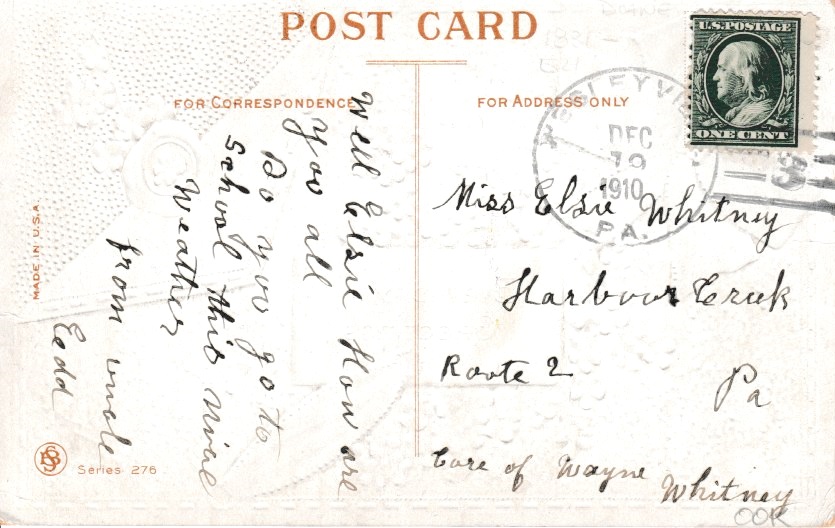 POST CARD
FOR CORRESPONDENCE
FOR ADDRESS ONLY
U.S. POSTAGE
ONE CENT
WESLEYVI
DEC
19
1910
PA.
Well Elsie How are
you all
Do you go to
School this nice
Weather
from uncle
Eedd
Miss Elsie Whitney
Harbour Creek
Route 2
Pa
Care of Wayne
Whitney
MADE IN U.S.A.
Series 276
OOK